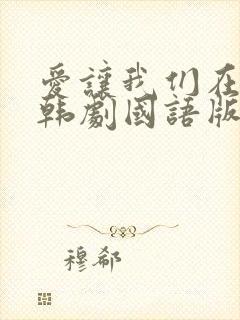 愛讓我们在
韩劇國語版
穆郗